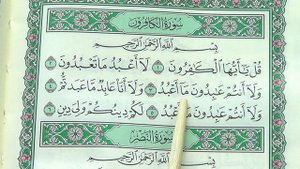 سُورَةُ الكَافِرُونَ
بِسْمِ اللَّهِ الرَّحْمَٰنِ الرَّحِيمِ
قُلْ يَٰٓأَيُّهَا ٱلْكَٰفِرُونَ ١ لَآ أَعْبُدُ مَا تَعْبُدُونَ ٢
وَلَآ أَنتُمْ عَٰبِدُونَ مَآ أَعْبُدُ ٣ وَلَآ أَنَا۠ عَابِدٌ مَّا عَبَدتُّمْ ٤
وَلَآ أَنتُمْ عَٰبِدُونَ مَآ أَعْبُدُ ٥ لَكُمْ دِينُكُمْ وَلِيَ دِينِ ٦
سُورَةُ النَّصْرِ
بِسْمِ اللَّهِ الرَّحْمَٰنِ الرَّحِيمِ